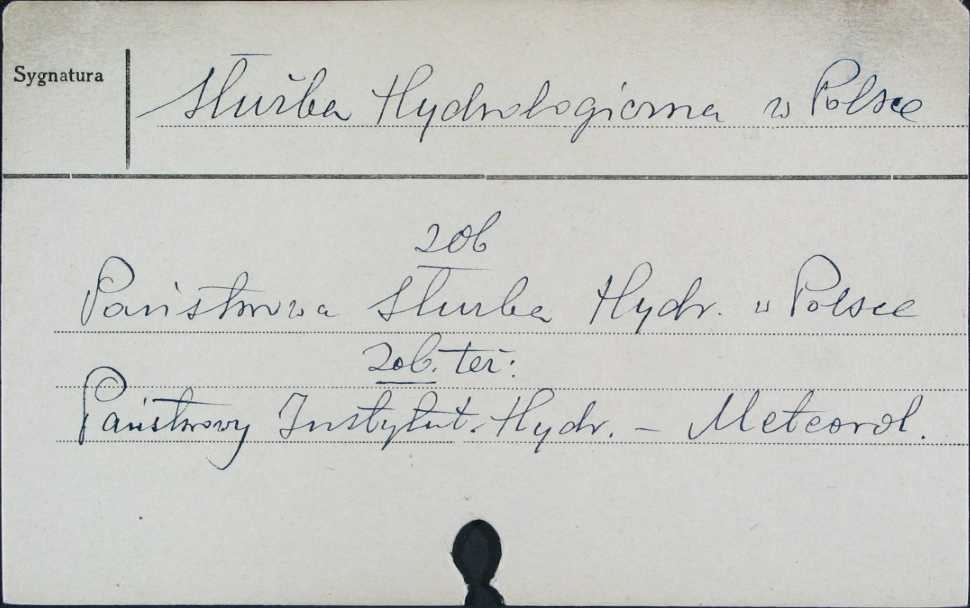 Sygnatura
Służba Hydrologiczna w Polsce
zob
Państwowa Służba Hydr. w Polsce
zob. też:
Państwowy Instytut. Hydr. - Meteorol.